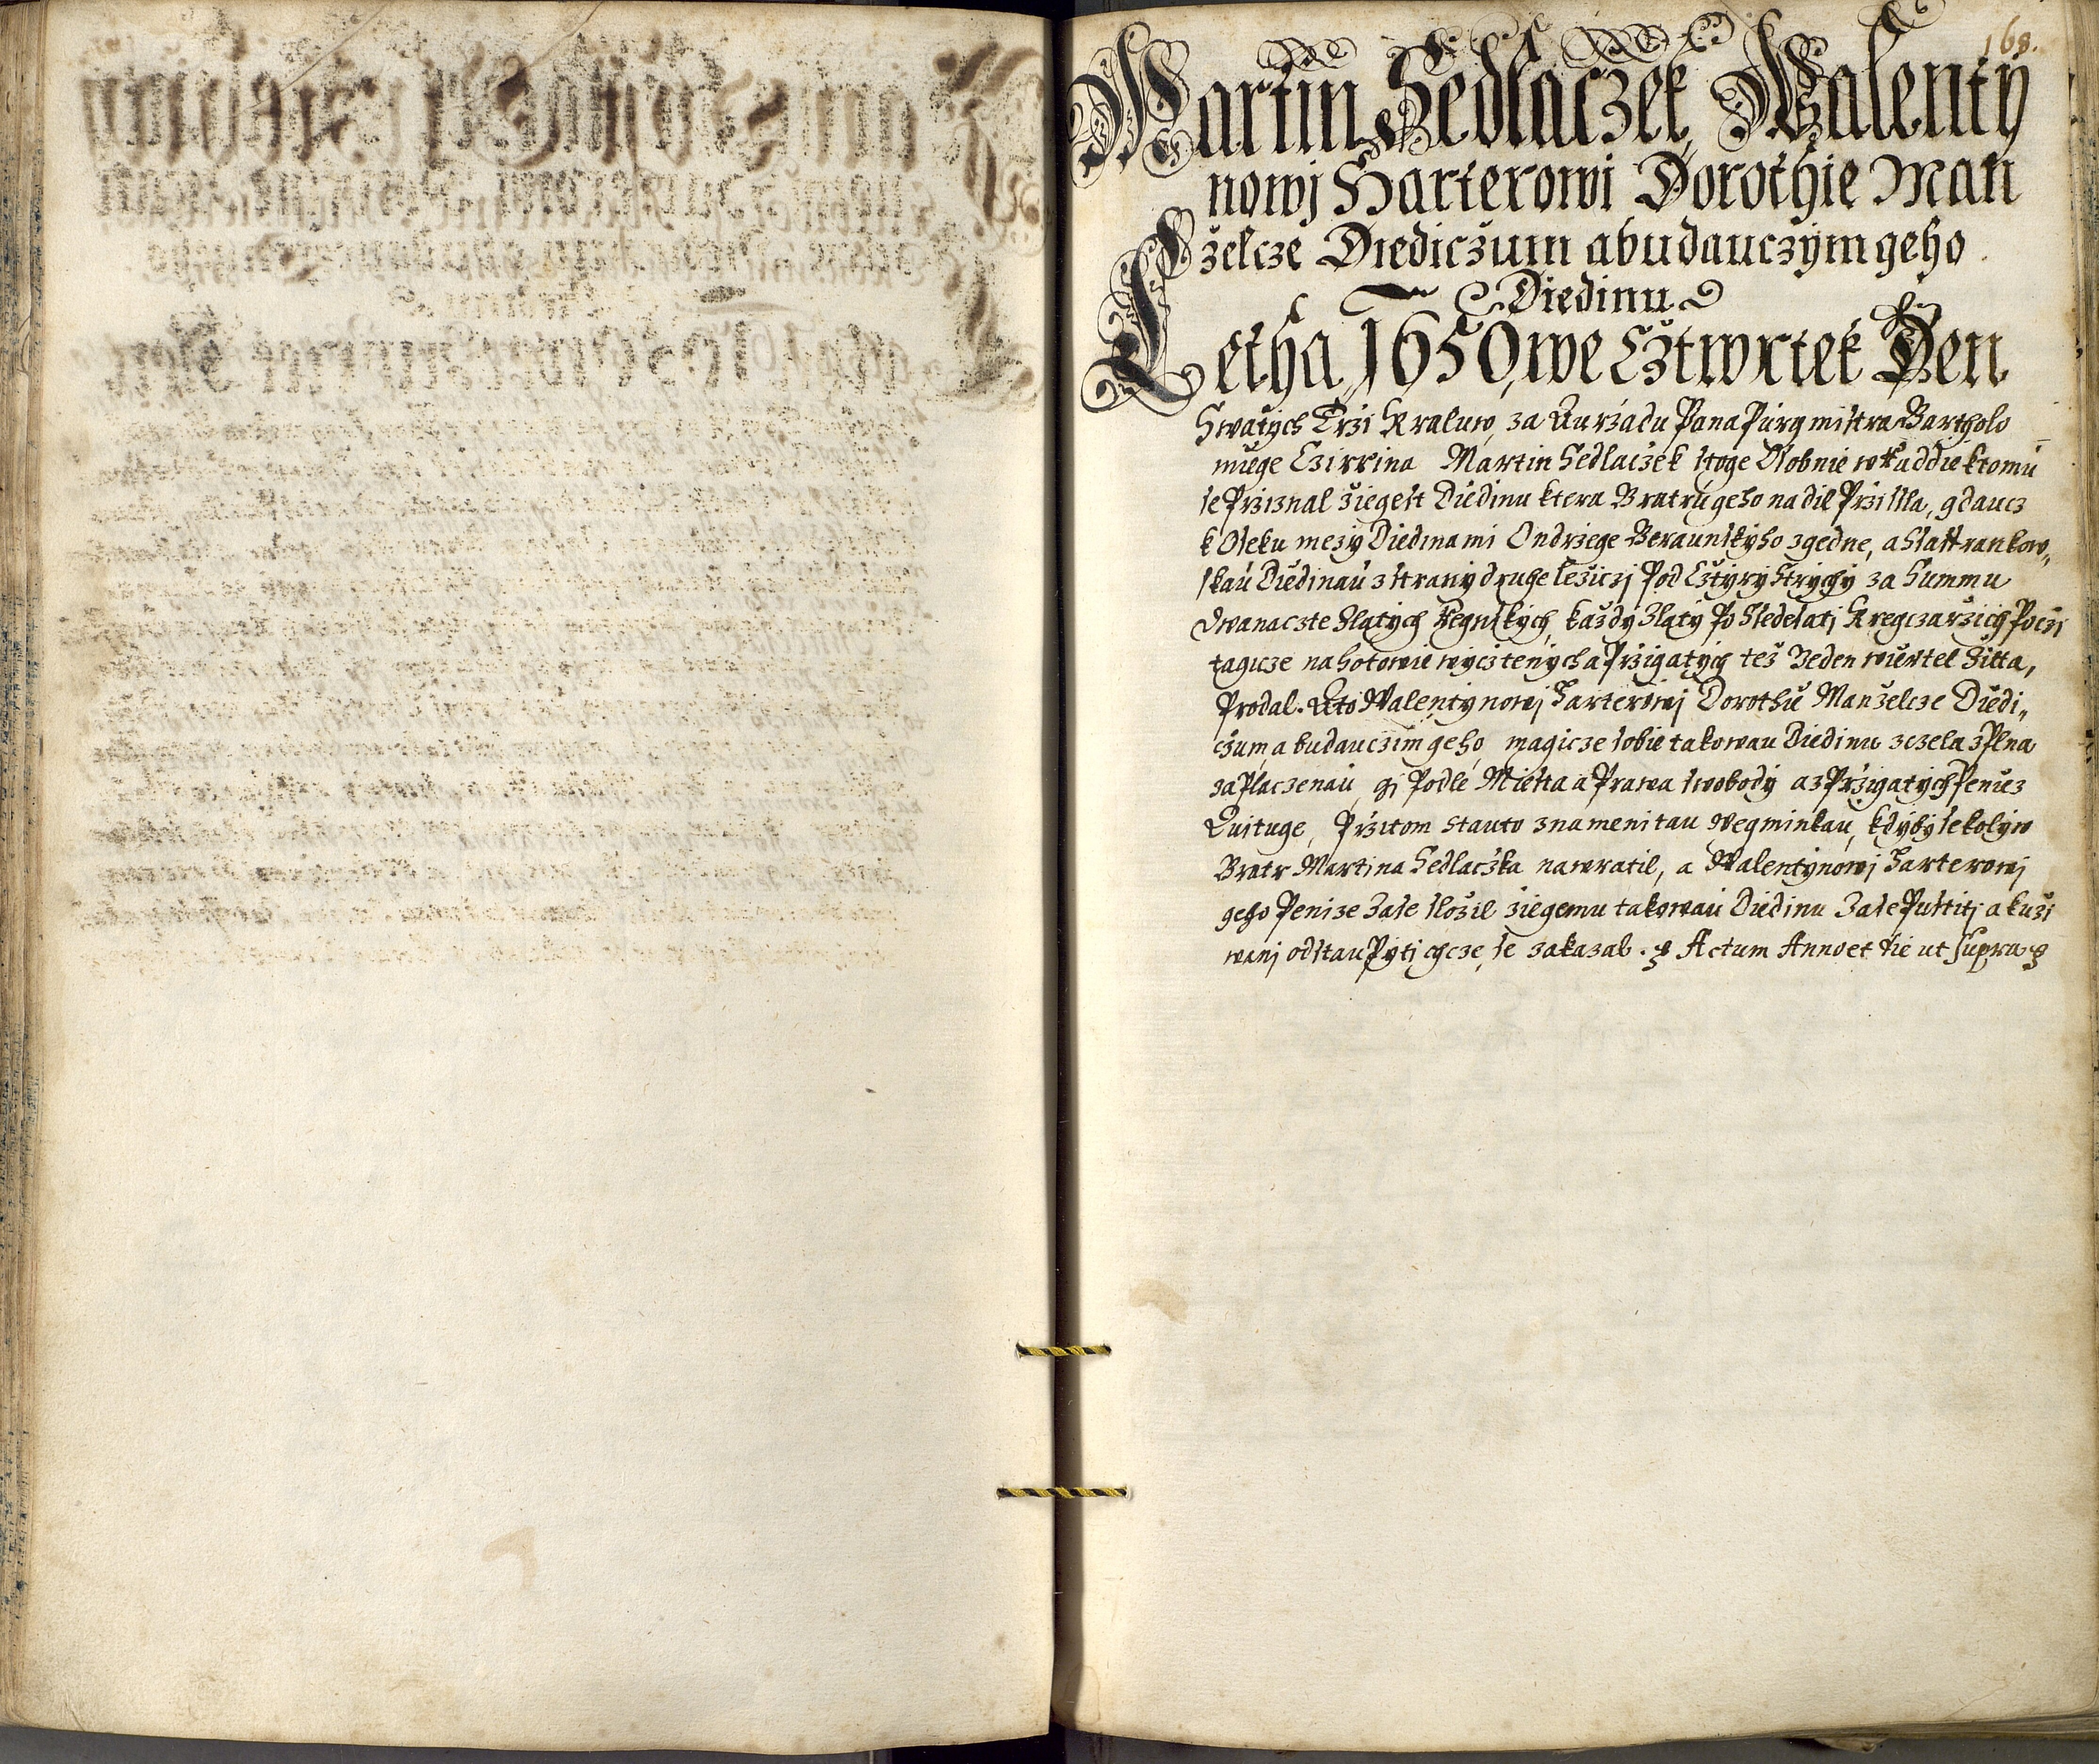 168.
Martin Sedlaczek, Walenty
nowj Harterowi Dorothie Man
želcze Diediczum a budauczým geho
Diedinu
Letha 1650, we Cžtwrtek Den
Swatých Trži Kraluw, za Auržadu Pana Purgmistra Bartholo
miege Czirrina Martin Sedlaczek stoge Osobnie w Raddie k tomu
se Przisnal žiegest Diedinu ktera Bratru geho na dil Przissla, gdaucz
k Oseku mezý Diedinami Ondržege Beraunskýho z gedne, a
skau Diedinau z straný drugeležiczj Pod Cžtýrý Strýchý za Summu
Dwanaczte Zlatých Regnských, každý Zlatý Po Ssedesatj Kregczaržich Poczi
tagicze na hotowie wýcztených a Przigatých též Jeden wiertel Žitta,
Prodal. A to Walentýnowj Harterowj Dorothie Manželcze Diedi„
czum a budauczim geho, magicze sobie takowau Diedinu zczela zPlna
zaPlaczenau, gj Podle Miesta a Prawa swobodý a z Przigatých Peniez
Quituge, Przitom s tauto znamenitau Wegminkau, kdýbý se kolýw
Bratr Martina Sedlaczka nawratil, a Walentýnowj Harterowj
geho Penize Zase složil žiegemu takowau Diedinu Zase Pustitj a k uži
wanj odstauPýtj chcze, se zakazal. Actum Anno et die ut supra